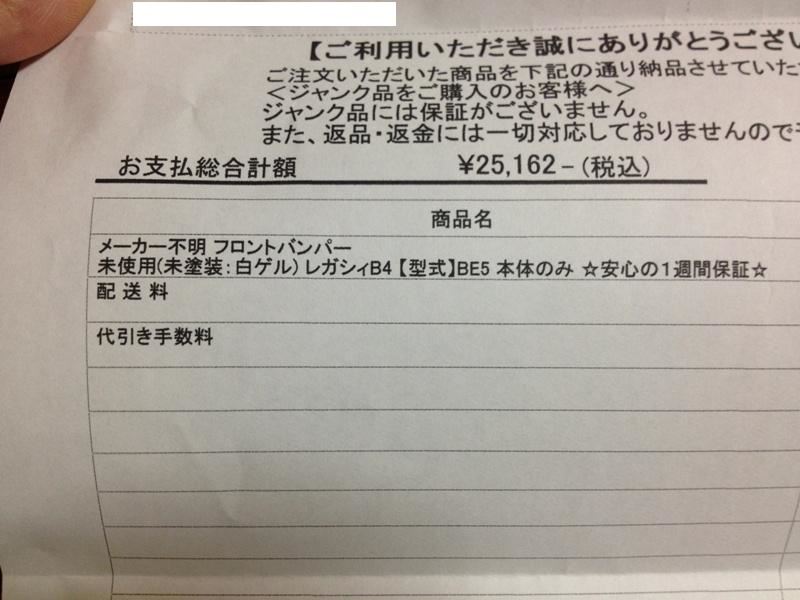 【ご利用いただき誠にありがとうござい
ご注文いただいた商品を下記の通り納品させていた
＜ジャンク品をご購入のお客様へ＞
ジャンク品には保証がございません。
また、返品・返金には一切対応しておりませんので
お支払総合計額 ¥25,162－(税込)
商品名
メーカー不明 フロントバンパー
未使用(未塗装：白ゲル) レガシィB4 【型式】BE5 本体のみ ☆安心の1週間保証☆
配送料
代引き手数料